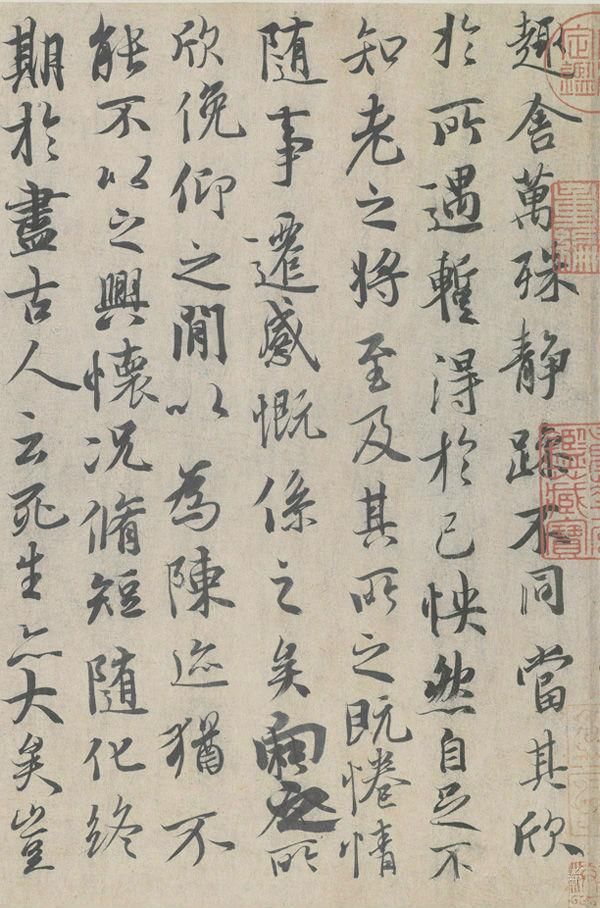 趣舍萬殊静躁不同當其欣
於所遇蹔得於己怏然自足不
知老之将至及其所之既惓情
随事遷感慨係之矣向之所
欣俛仰之閒以為陳迹猶不
能不以之興懷况脩短随化終
期於盡古人云死生亦大矣豈
定鑑
重編
鑑藏寶